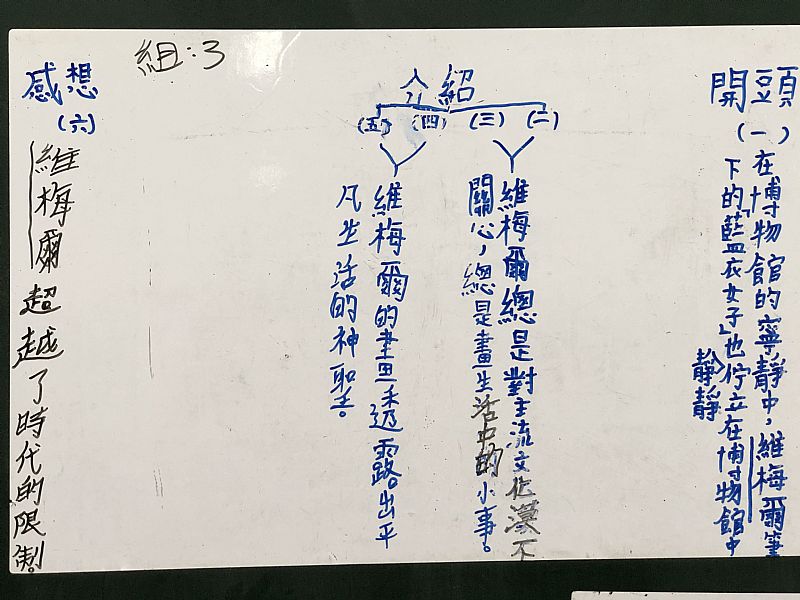 組:3
開頭
(一)
在博物館的寧靜中，維梅爾筆
下的「藍衣女子」也佇立在博物館中
靜靜
介紹
(二)
(三)
(四)
(五)
維梅爾總是對主流文化漠不
關心，總是畫生活中的小事。
維梅爾的畫透露出平
凡生活的神聖。
感想
(六)
維梅爾超越了時代的限制。